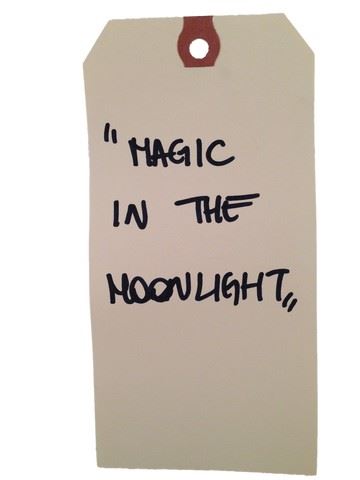 "MAGIC
IN THE
MOONLIGHT„